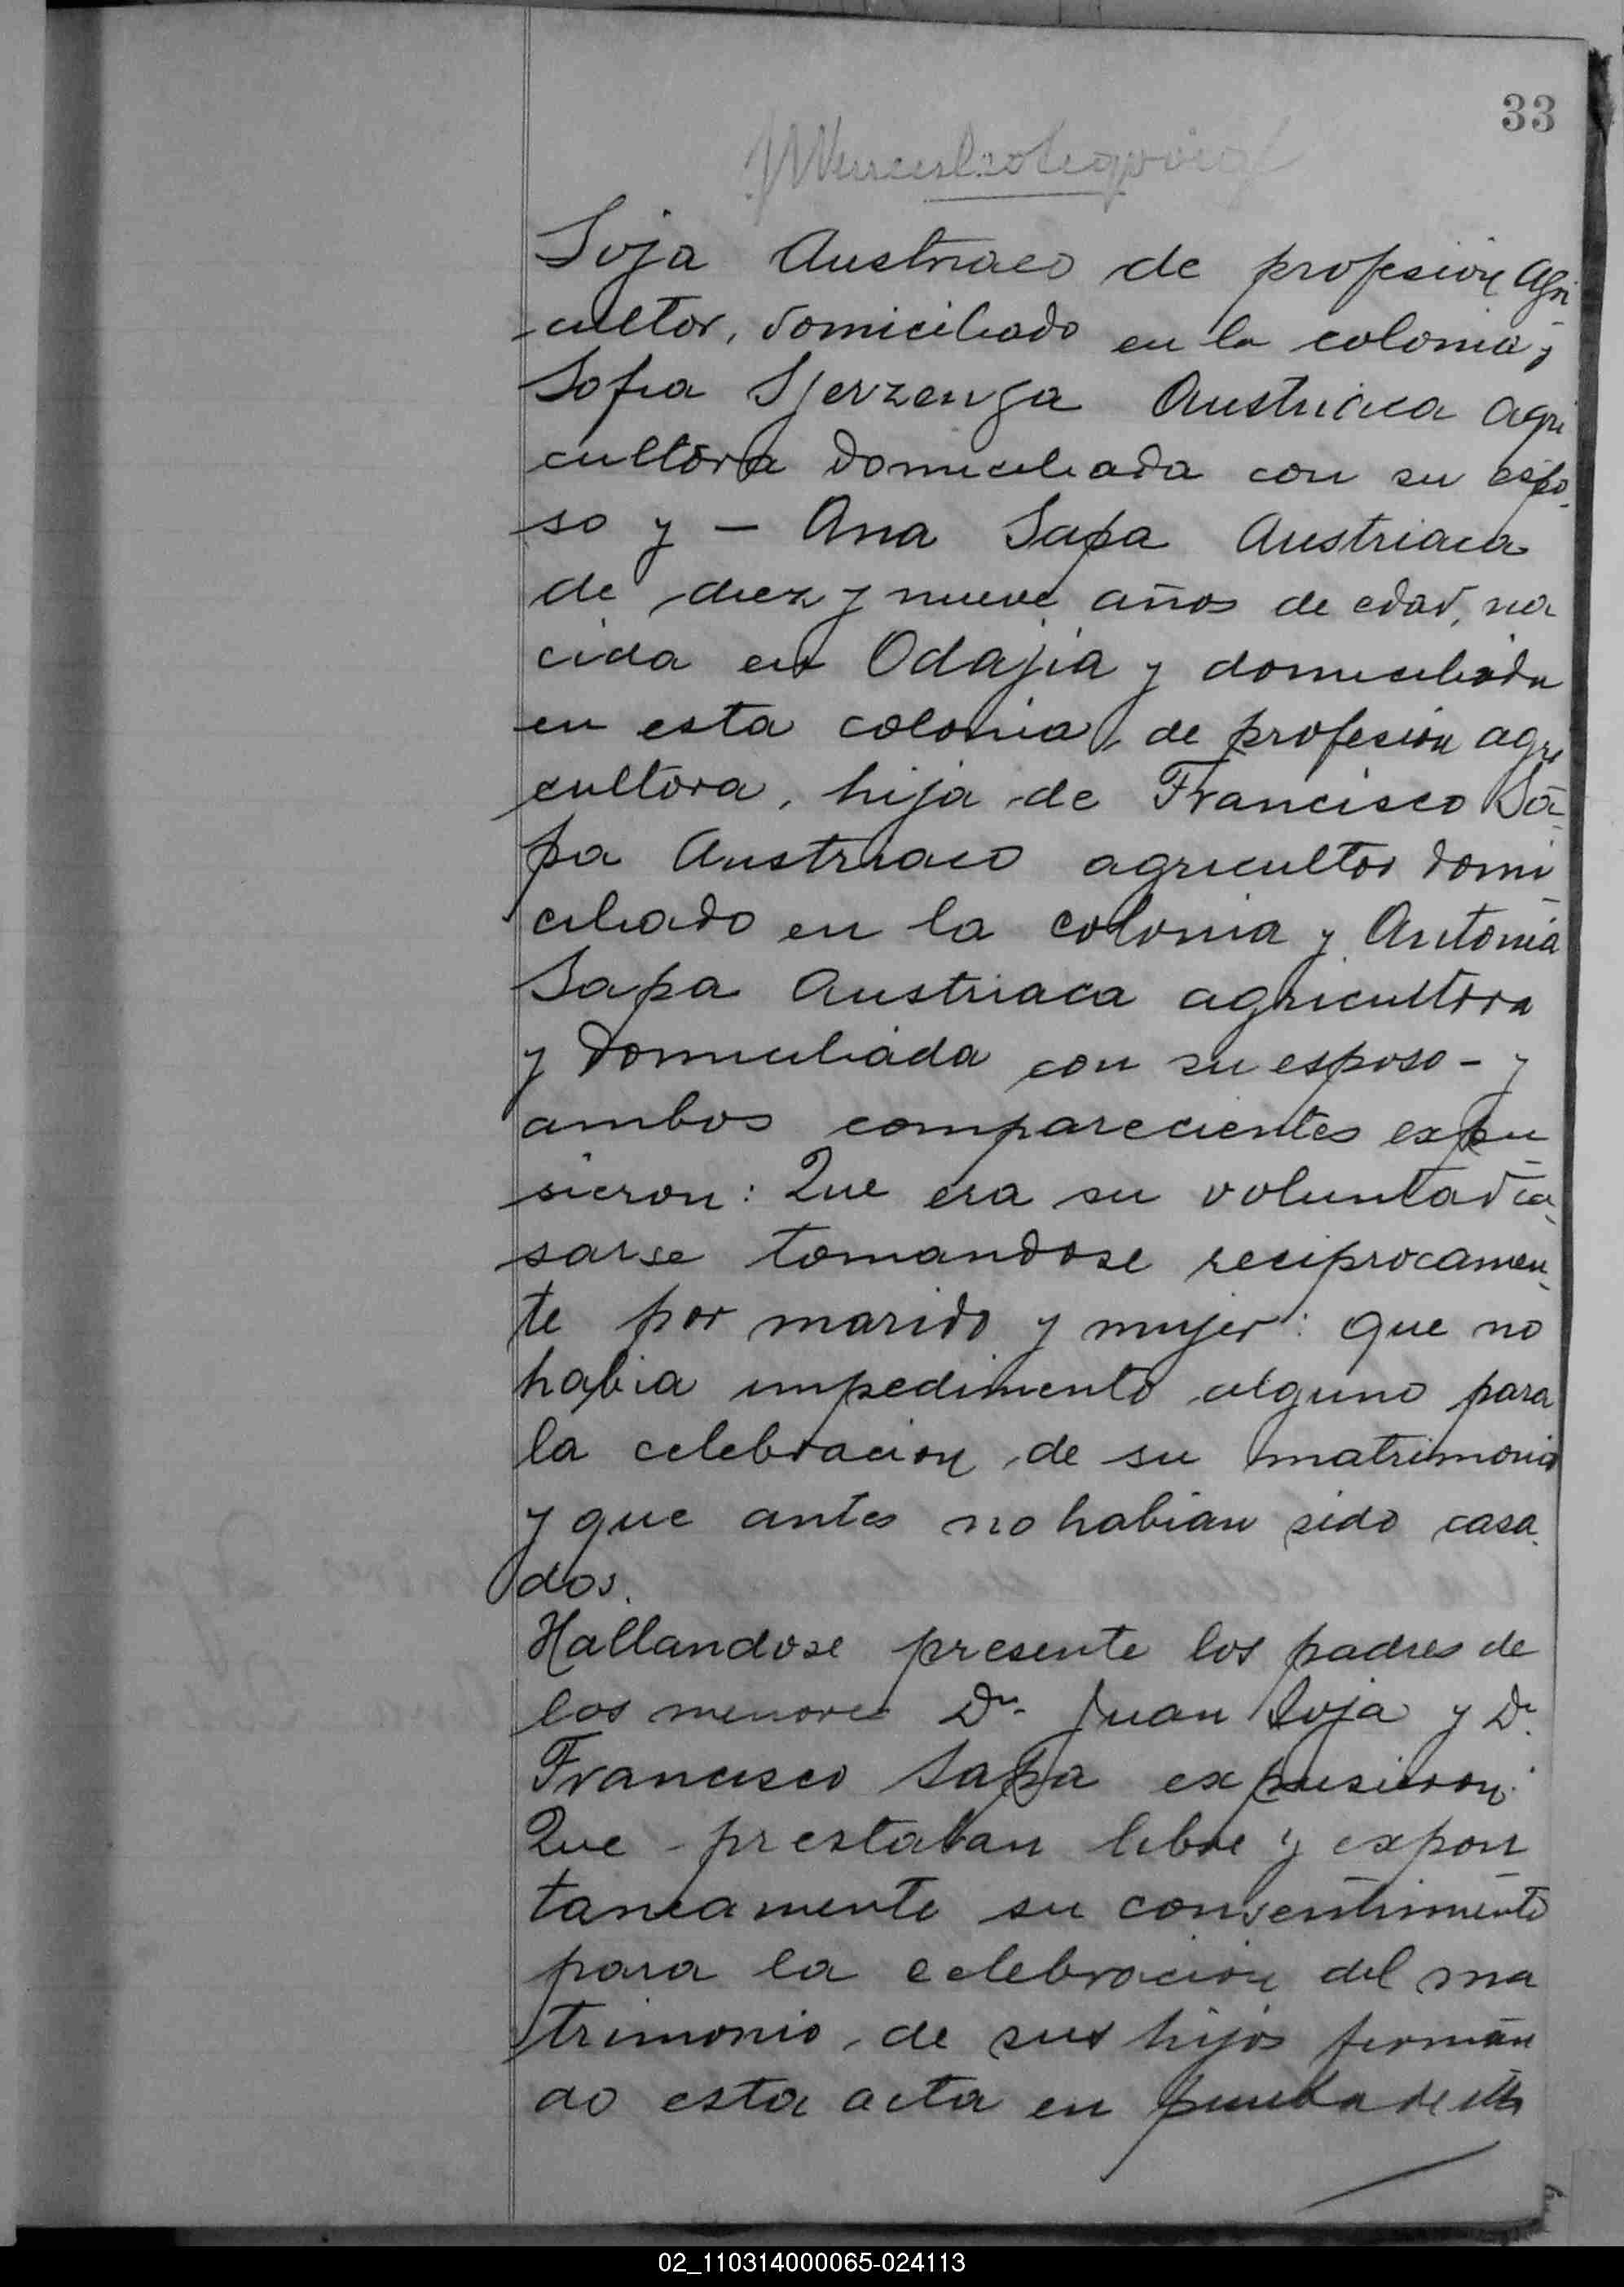 33
Soja Austriaco de profesión Agri
cultor, domiciliado en la colonia y
Sofia Sjerzenga Austriaca agri
cultora domiciliada con su espo-
so y – Ana Sapa Austriaca
de diez y nueve años de edad, na
cida en Odajia y domiciliada
en esta colonia, de profesión agri
cultora, hija de Francisco Sa-
pa Austriaco agricultor domi-
ciliado en la colonia y Antonia
Sapa Austriaca agricultora
y domiciliada con su esposo – y
ambos comparecientes expu-
sieron: Que era su voluntad ca-
sarse tomandose reciprocamen-
te por marido y mujer: que no
habia impedimento alguno para
la celebracion de su matrimonio
y que antes no habian sido casa-
dos.
Hallandose presente los padres de
los menores Dn. Juan Soja y Dn.
Francisco Sapa expusieron:
Que prestaban libre y expon-
taneamente su consentimiento
para la celebracion del ma
trimonio de sus hijos firman
do esta acta en prueba de ello
02_110314000065-024113